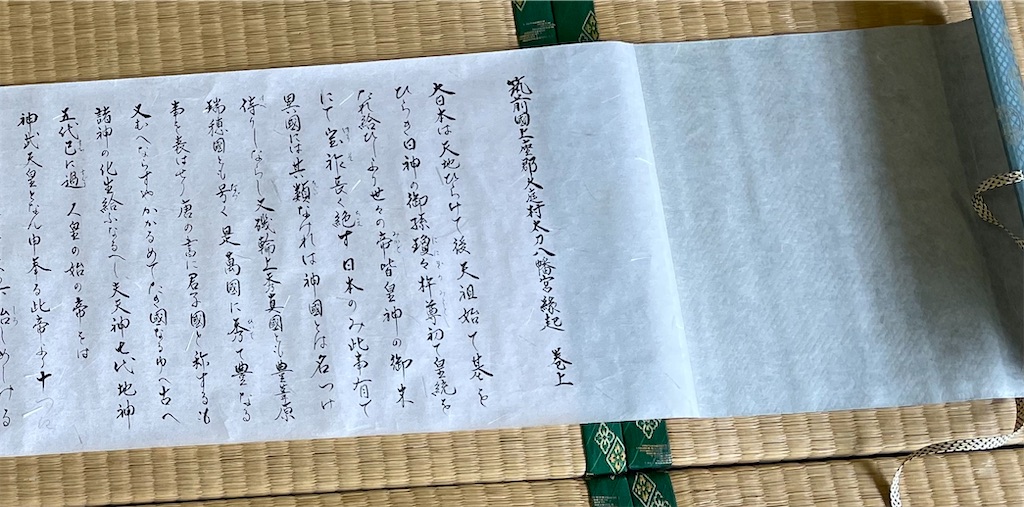 筑前國上座郡大庭村太刀八幡宮縁起 巻上
大日本は天地ひらけて後天祖始て基を
ひらき日神の御孫瓊々杵尊初て皇統を
たれ給ひしより世々の帝皆皇神の御末
にて宝祚長く絶す日本のみ此事有て
異國には其類なけれは神國とは名つけ
侍りしならし又磯輪上秀真國とも豊葦原
瑞穂國とも号く是萬國に秀て豊なる
事を表はせり唐の書に君子國と称するも
又むへならすやかかるめてたき國なるゆへ古へ
諸神の化生給ふなるへし夫天神七代地神
五代已に過人皇の始の帝をは
神武天皇となん申奉る此帝より十